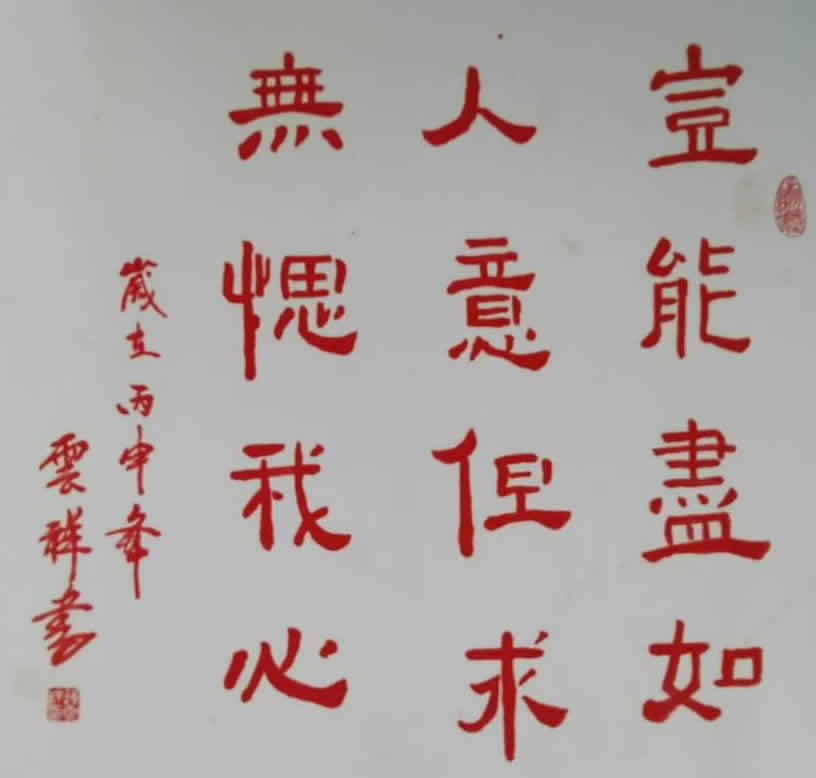 豈能盡如
人意但求
無愢我心
歲在丙申年
雲祥書